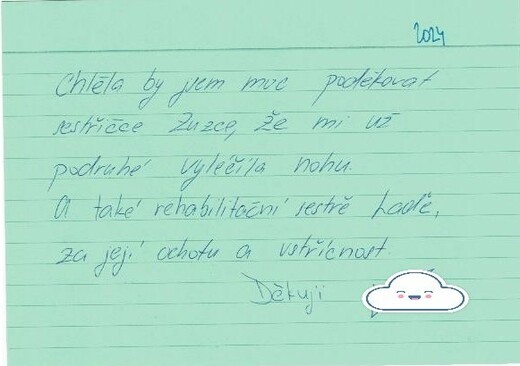 2024
Chtěla by jsem moc poděkovat
sestřičce Zuzce, že mi už
podruhé vyléčila nohu.
A také rehabilitační sestře Ladě,
za její ochotu a vstřícnost.
Děkuji